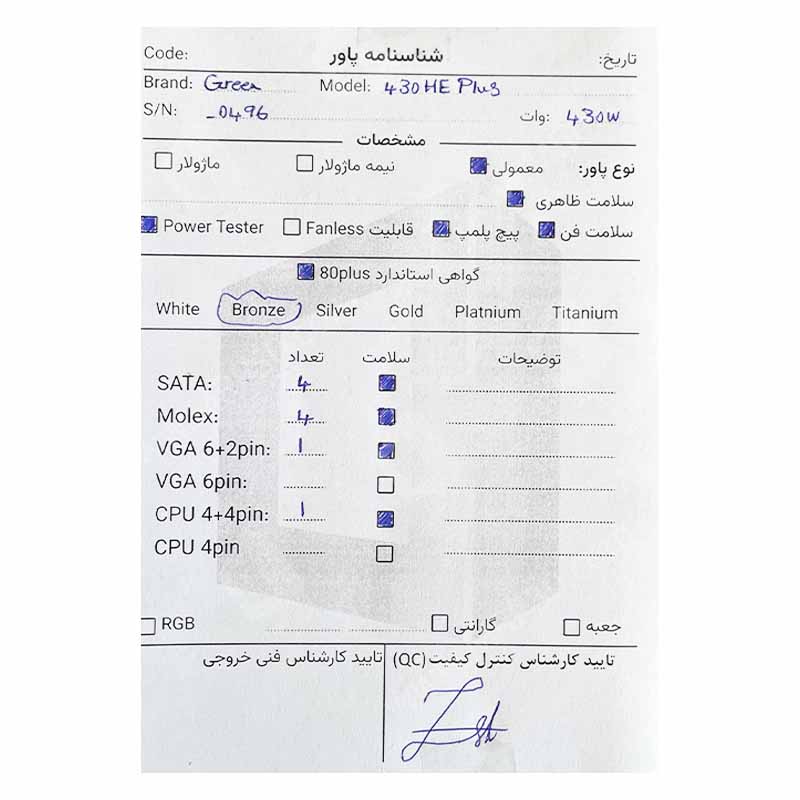 Code: شناسنامه پاور تاریخ:
Brand: Green Model: 430 HE Plus
S/N: _0496 وات: 430W
مشخصات
نوع پاور: معمولی نیمه ماژولار ماژولار
سلامت ظاهری
سلامت فن پیچ پلمپ قابلیت Fanless Power Tester
گواهی استاندارد 80plus
White Bronze Silver Gold Platnium Titanium
تعداد سلامت توضیحات
SATA: 4
Molex: 4
VGA 6+2pin: 1
VGA 6pin:
CPU 4+4pin: 1
CPU 4pin
RGB گارانتی جعبه
تایید کارشناس کنترل کیفیت (QC) تایید کارشناس فنی خروجی